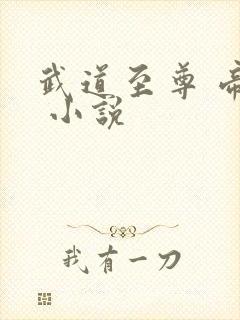 武道至尊 帝
小說
我有一刀